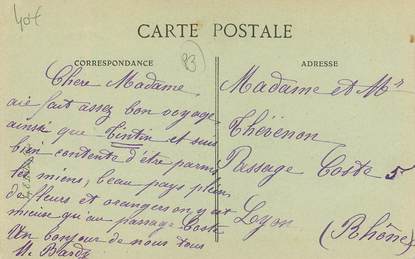 40€
CARTE POSTALE
83
CORRESPONDANCE
Chère Madame
ai fait assez bon voyage
ainsi que Tintin et suis
bien contente d'être parmi
les miens, beau pays plein
de fleurs et orangers on y est
mieux qu'au passage Coste
Un bonjour de nous tous
M. Bardy
ADRESSE
Madame et Mr
Thérénon
Passage Coste 5
Lyon
(Rhône)